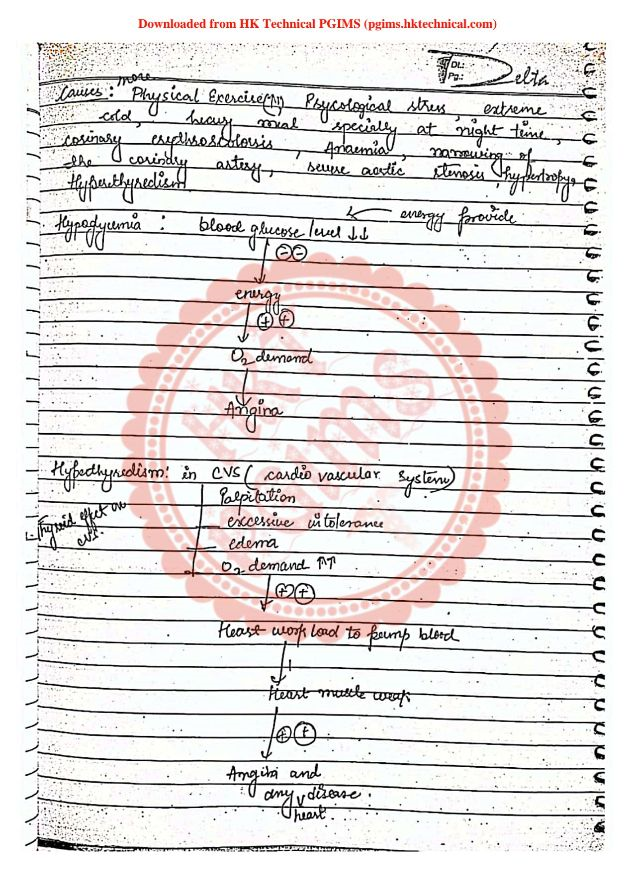 Downloaded from HK Technical PGIMS (pgims.hktechnical.com)
DL:
Pg.:
Delta
more
Causes: Physical Exercise(↑↑) Psycological stress, extreme
cold, heavy meal specially at night time,
corinary erythroscolosis, Anaemia, narrowing of
the corinary artery, severe aortic stenosis, hypertropy,
Hyperthyredism
← energy provide
Hypoglycemia : blood glucose level ↓↓
⊖⊖
energy
⊕ ⊕
O2 demand
Angina
Hyperthyredism: in CVS (cardio vascular system)
Palpitation
Thyroid effect on
CVS.
excessive intolerance
edema
O2 demand ↑↑
⊕⊕
Heart work load to pump blood
Heart muscle weak
⊕⊕
Angina and
any disease.
heart
HKT
PGIMS